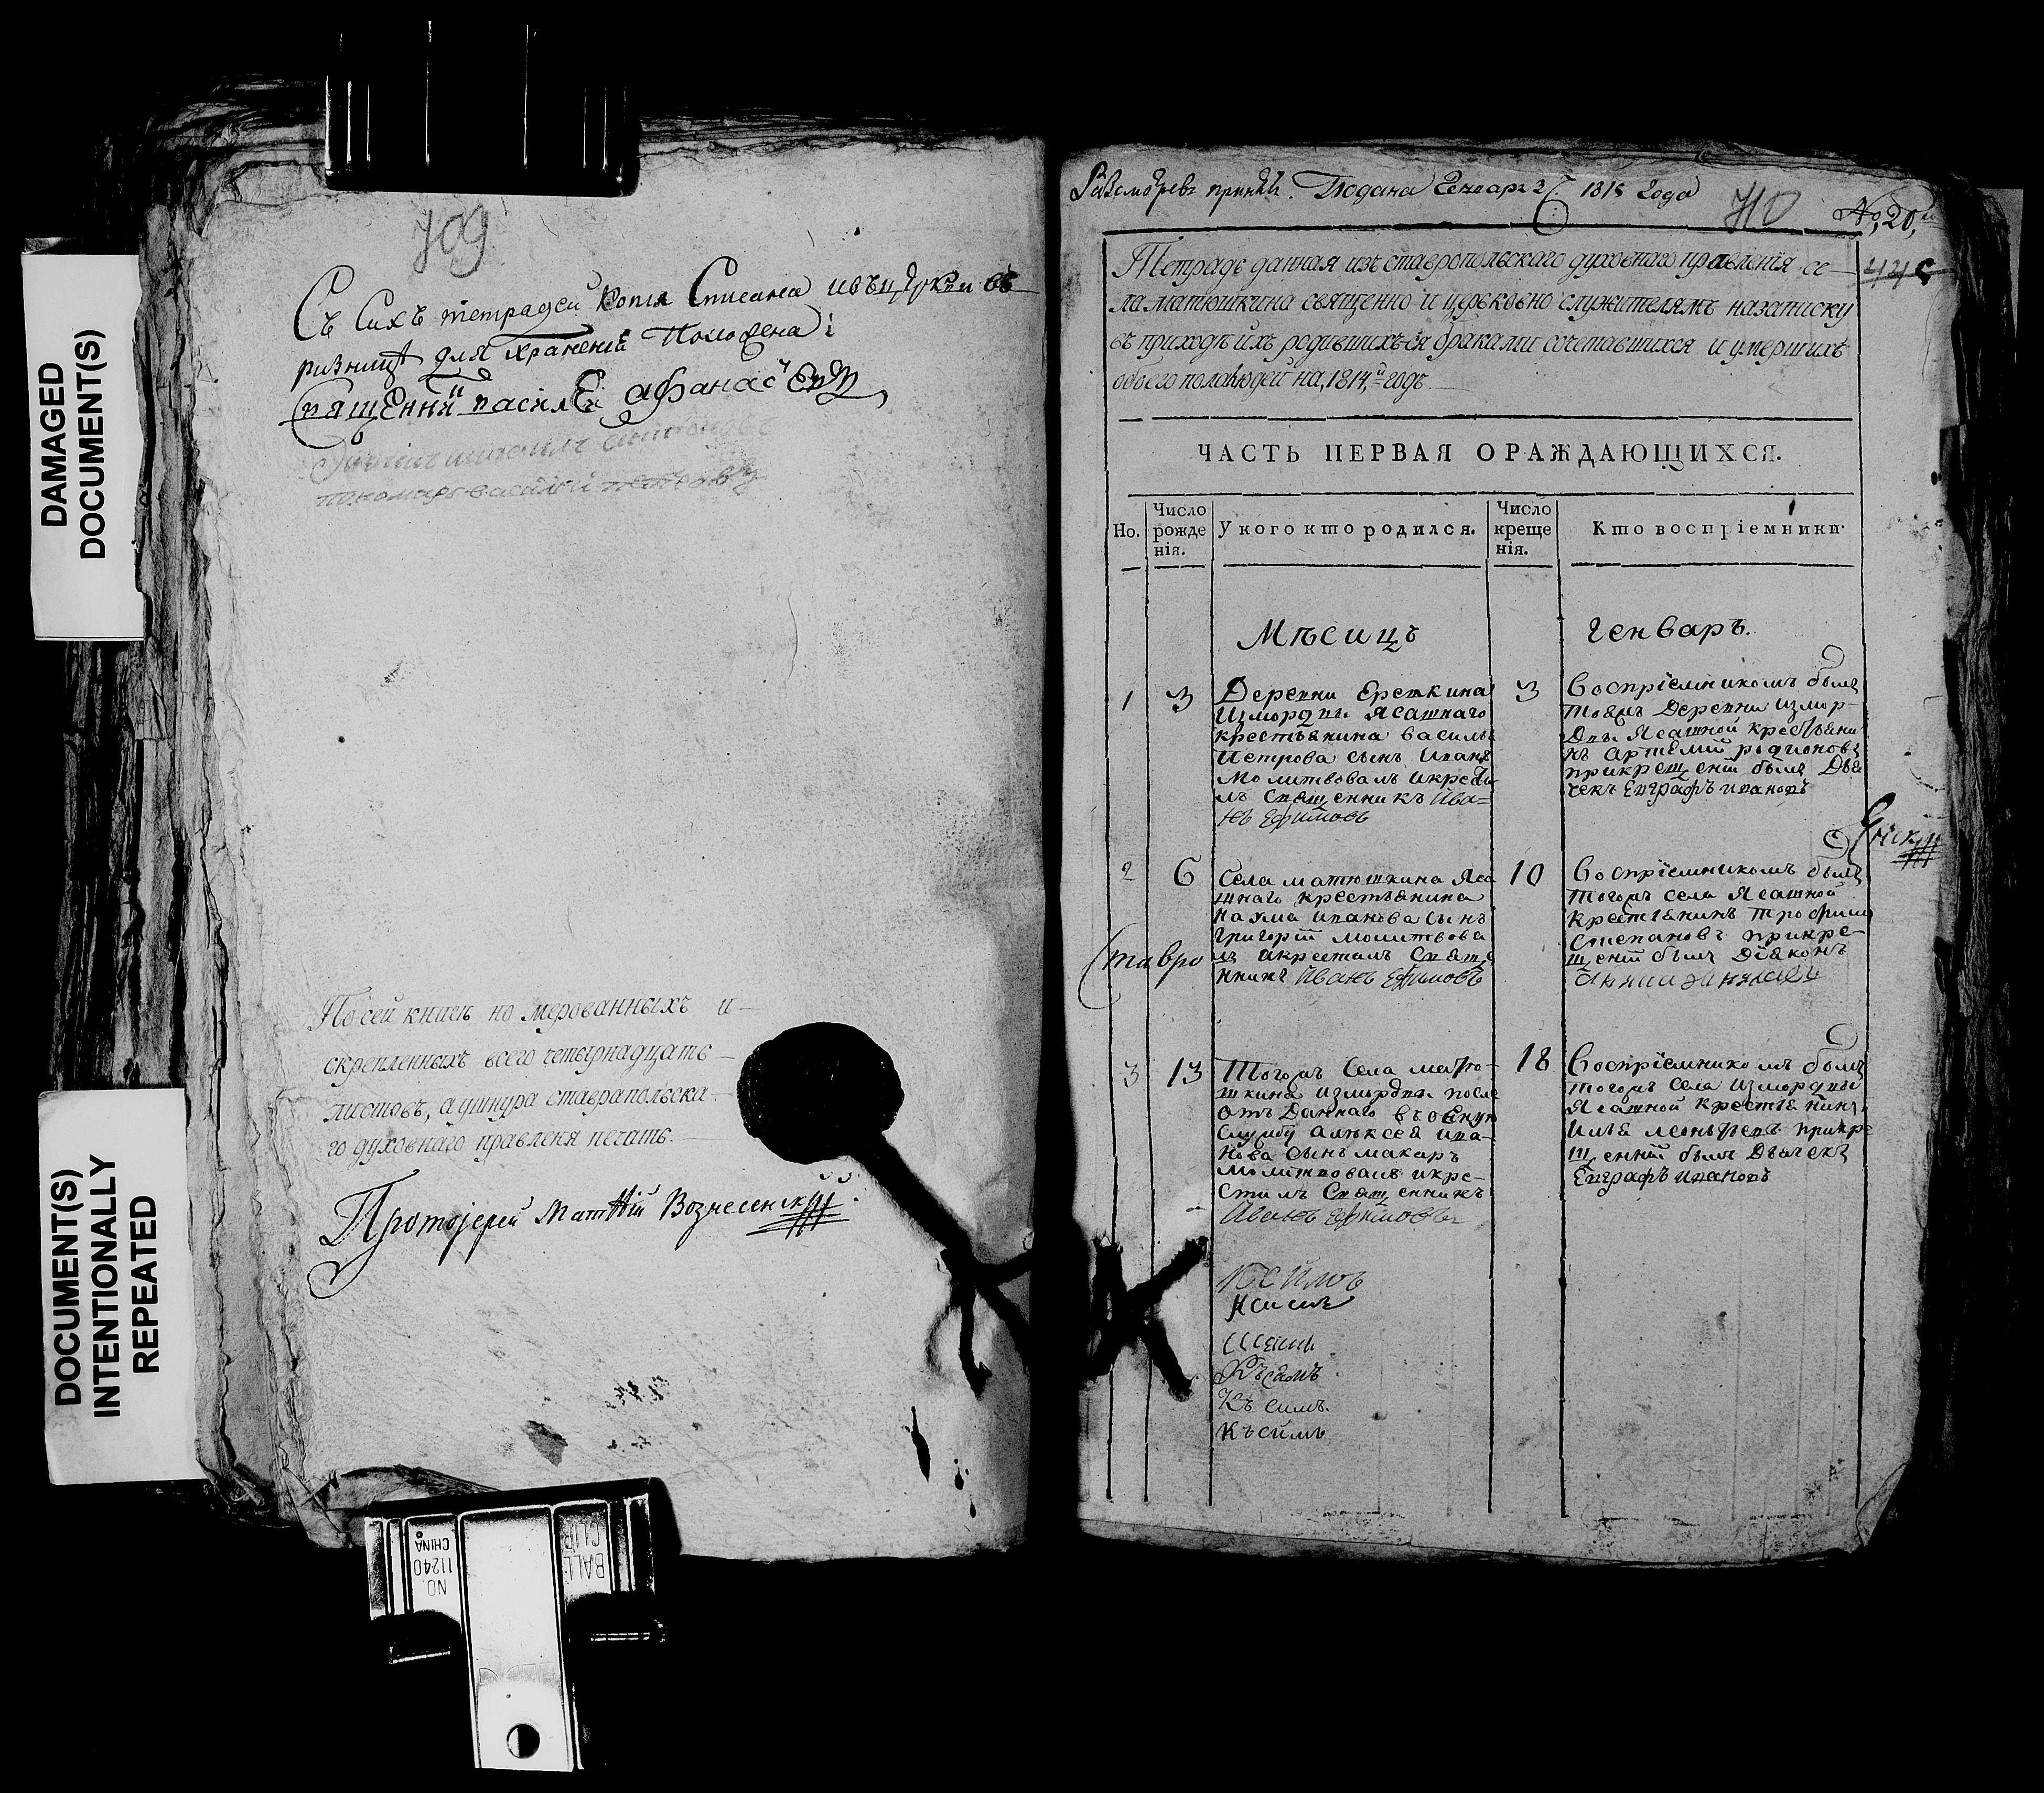 DAMAGED
DOCUMENT(S)
DOCUMENT(S)
INTENTIONALLY
REPEATED
709
Съ Сихъ тетрадей Копiя Списана ивъ церкви въ
ризницѣ для храненiй Положена
священнй василей афанасьевъ
пономарь василiй петровъ
По сей книгѣ но мерованныхъ и
скрепленныхъ всего четырнадцать
листовъ, а у шнура ставрапольска
го духовнаго правленя печать.
Протоiерей Матθiй Вознесенскiй
NO.
11240
CHINA
BALL
CLIP
Разсмотревъ принялъ. Подана Генваря 1815 года
710
No, 20,
Тетрадь данная изъ ставропольскаго духовнаго правленiя се
ла матюшкина священно и церьковно служителямъ на записку
въ приходѣ ихъ родившихъся браками сочетавшихся и умершихъ
обоего пола людей на, 1814, й годъ.
ЧАСТЬ ПЕРВАЯ О РАЖДАЮЩИХСЯ.
Но.
Число
рожде
нiя.
У кого кто родился.
Число
креще
нiя.
Кто воспрiемники.
Мѣсицъ
генваръ.
1
3
Деревни Ерепкина
Измордвы Ясашнаго
крестьянина василья
Петрова сынъ Иванъ
Молитвовалъ икрести
лъ Священникъ Ива=
нъ Ефимовъ
3
Воспрiемникомъ былъ
тоежъ Деревни измор-
двы Ясашной крестьяни
нъ артемiй родионовъ
прикрещенiи былъ Дья
чекъ Евграфъ ивановъ
2
6
Села матюшкина Яса
шнаго крестьянина
наума иванова сынъ
григорiй молитвова
лъ икрестилъ Свяще
нникъ Иванъ Ефимовъ
10
Воспрiемникомъ былъ
тогожъ села Ясашной
крестьянинъ трофимъ
степановъ прикре-
щенiи былъ Дiяконъ
Ставро
3
13
Тогожъ Села матю-
шкина измордвы после
отъ Даннаго въ военую
службу алѣксея ива-
нова сынъ макаръ
молитвовалъ икре-
стилъ Священникъ
Иванъ Ефимовъ
18
Воспрiемникомъ былъ
тогожъ села измордвы
Ясашной крестьянинъ
Илья леонтьевъ прикре
щенiи былъ Дьячекъ
Евграфъ ивановъ
Къ симъ.
Къ симъ